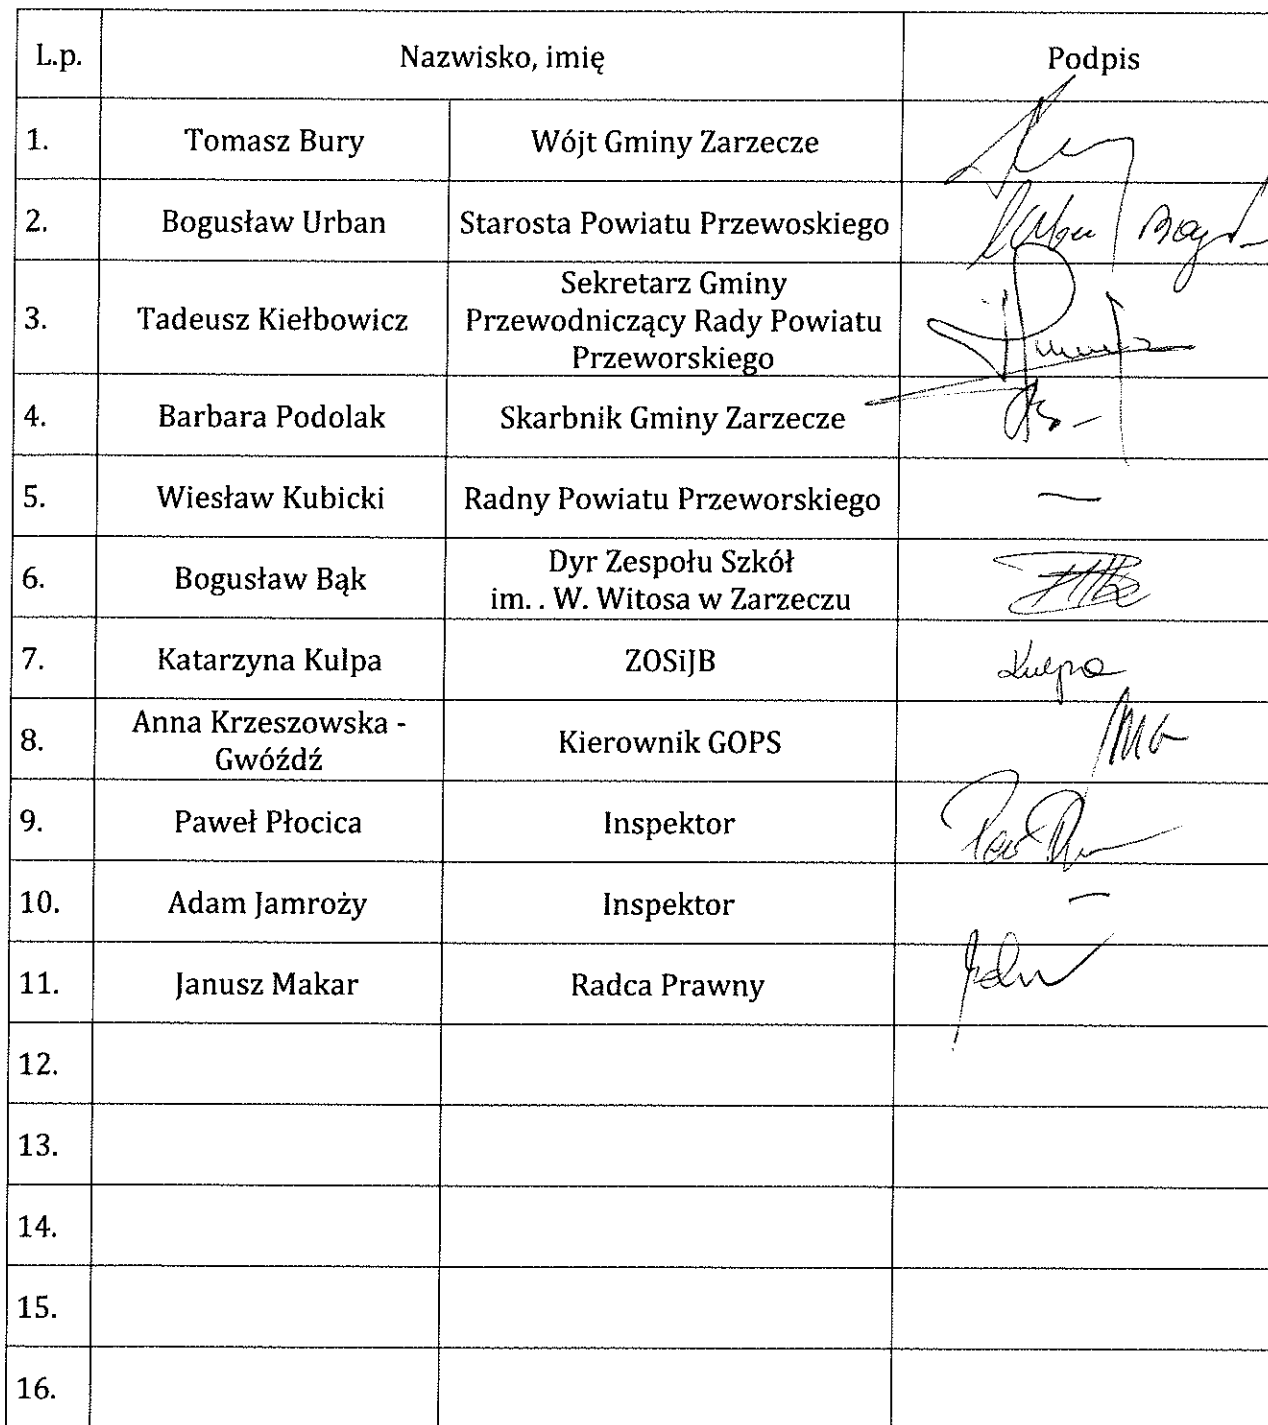 L.p. Nazwisko, imię Podpis
1. Tomasz Bury Wójt Gminy Zarzecze
2. Bogusław Urban Starosta Powiatu Przewoskiego
3. Tadeusz Kiełbowicz Sekretarz Gminy
Przewodniczący Rady Powiatu
Przeworskiego
4. Barbara Podolak Skarbnik Gminy Zarzecze
5. Wiesław Kubicki Radny Powiatu Przeworskiego —
6. Bogusław Bąk Dyr Zespołu Szkół
im. . W. Witosa w Zarzeczu
7. Katarzyna Kulpa ZOSiJB Kulpa
8. Anna Krzeszowska -
Gwóźdź Kierownik GOPS
9. Paweł Płocica Inspektor
10. Adam Jamroży Inspektor —
11. Janusz Makar Radca Prawny
12.
13.
14.
15.
16.